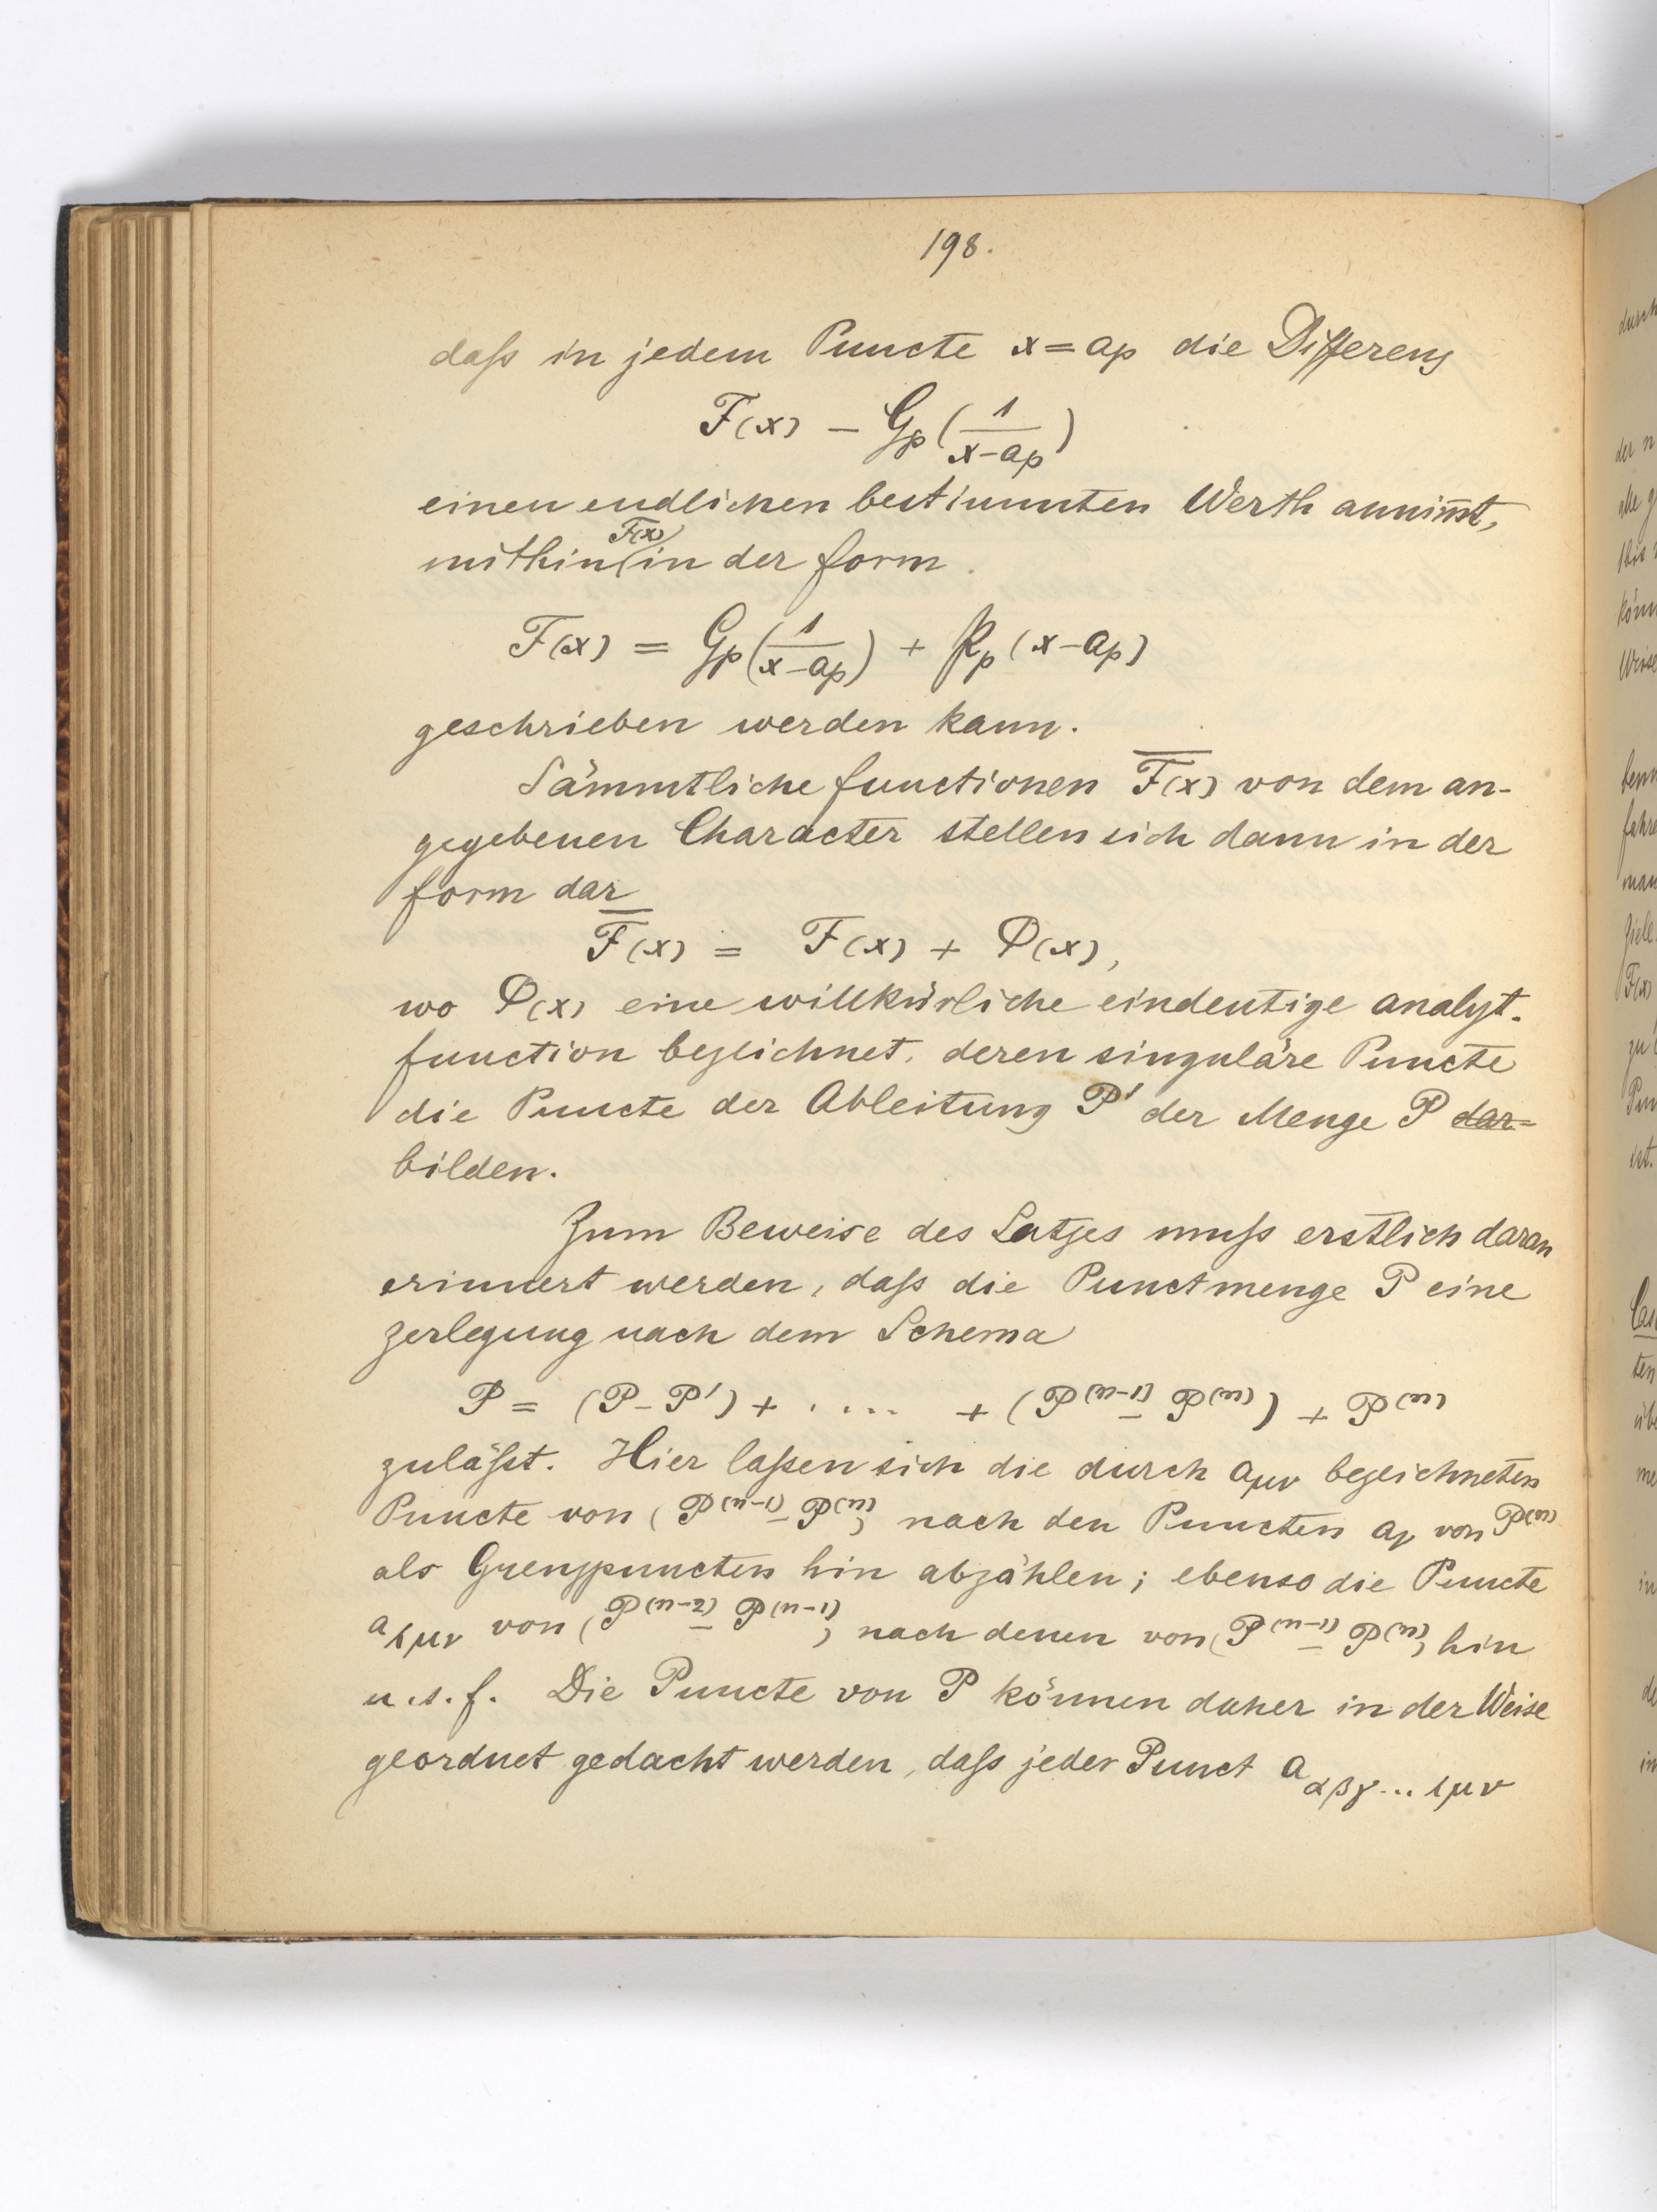 198.
daſs in jedem Puncte x = a_p die Differenz
F(x) – G_p(1/(x–a_p))
einen endlichen bestimmten Werth annim̄t,
mithin F(x) in der form
F(x) = G_p(1/(x–a_p)) + P_p(x–a_p)
geschrieben werden kann.
Sämmtliche functionen F̅(x) von dem an-
gegebenen Character stellen sich dann in der
form dar
F̅(x) = F(x) + Φ(x),
wo Φ(x) eine willkürliche eindeutige analyt.
function bezeichnet, deren singuläre Puncte
die Puncte der Ableitung P' der Menge P dar-
bilden.
Zum Beweise des Satzes muſs erstlich daran
erinnert werden, daſs die Punctmenge P eine
zerlegung nach dem Schema
P = (P – P') + .... + (P^(n–1) – P^(n)) + P^(n)
zuläſst. Hier laſsen sich die durch a_μν bezeichneten
Puncte von (P^(n–1) – P^(n)) nach den Puncten a_ν von P^(n)
als Grenzpuncten hin abzählen; ebenso die Puncte
a_λμν von (P^(n–2) – P^(n–1)) nach denen von (P^(n–1) – P^(n)) hin
u.s.f. Die Puncte von P können daher in der Weise
geordnet gedacht werden, daſs jeder Punct a_αβγ...λμν